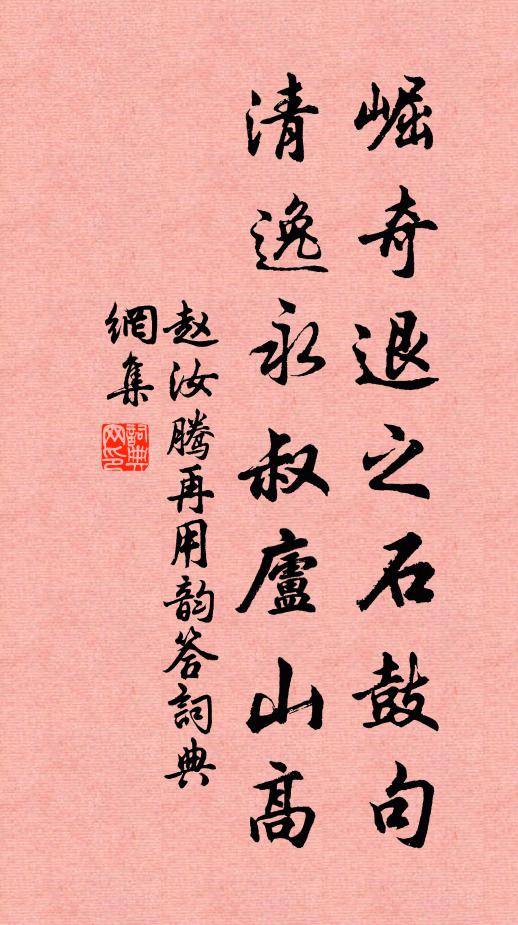 崛奇退之石鼓句
清逸永叔廬山高
赵汝腾再用韵答詞典
網集
詞典
网印